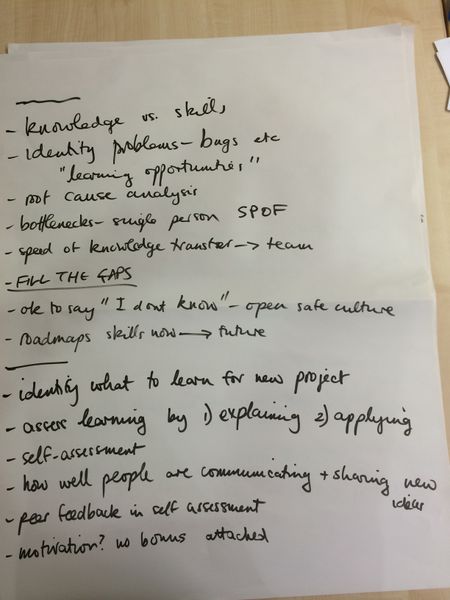 - knowledge vs. skills
- identity problems - bugs etc
"learning opportunities"
- root cause analysis
- bottlenecks - single person SPOF
- speed of knowledge transfer -> team
- FILL THE GAPS
- ok to say "I dont know" - open safe culture
- roadmaps skills now -> future
- identify what to learn for new project
- assess learning by 1) explaining 2) applying
- self-assessment
- how well people are communicating + sharing new
ideas
- peer feedback in self assessment
- motivation? no bonus attached